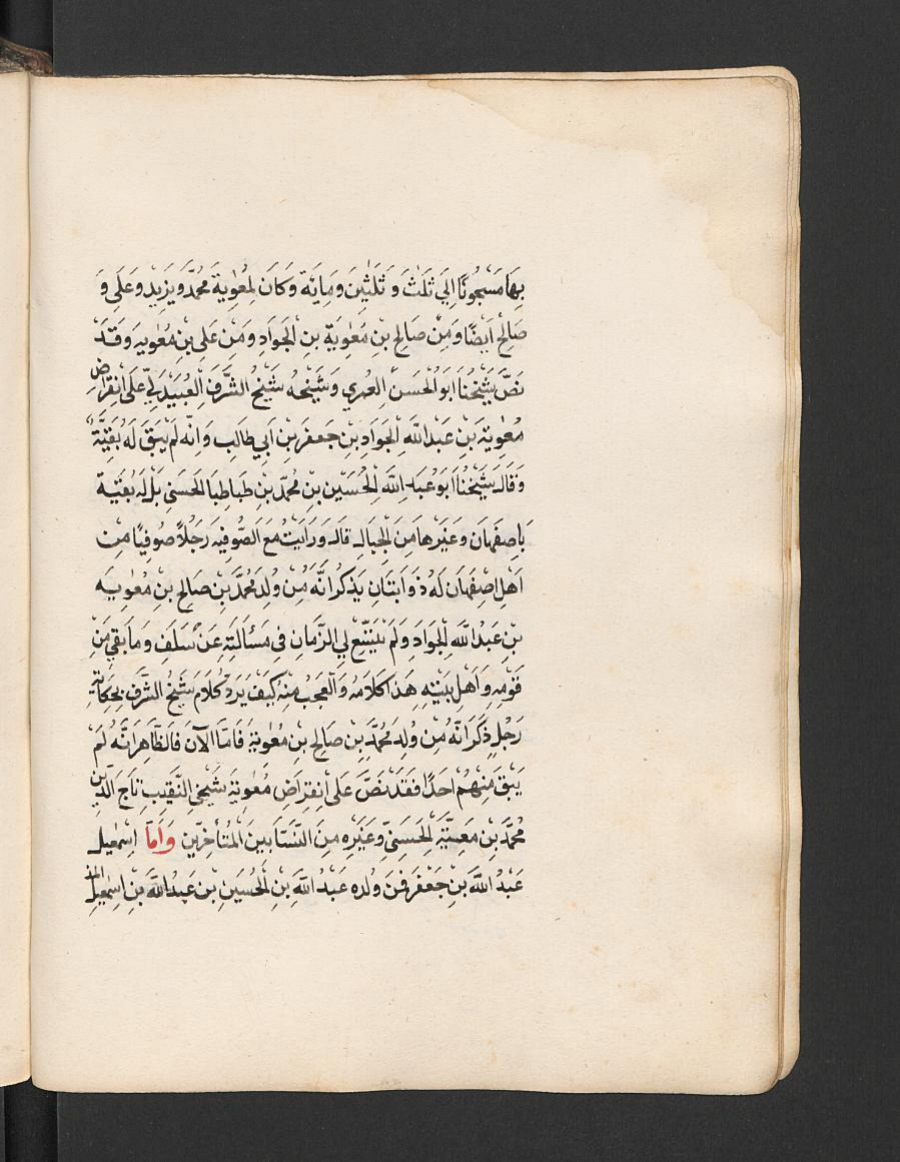 بِهَا مَسْجُونًا اِلَي ثَلٰثَ وَ ثَلٰثِينَ وَمِائَة وَكَانَ لِمُعٰوِيَة مُحَمَّدَ وَيَزِيد وَعَلِى وَ
صَالِحُ اَيْضًا وَمِنْ صَالِحِ بْنِ مُعٰوِيَة بنِ الْجَوَادِ وَمِن عَلِى بْن مُعٰوِيَه وَقَدْ
نَصَّ شَيْخُنَا اَبوُ الْحَسَنْ الْعُمَرِي وَشَيْخهُ شَيْخُ الشَّرَفِ الْعُبَيْدَلِىِّ عَلَى اَنْقِرَاضِ
مُعٰوِيَة بْنِ عَبْدِ اللّٰهِ الْجَوَادِ بْنِ جَعفَر بْنِ اَبِي طَالِب وَانّه لَمْ يَبْقَ لَهُ بَقِيَّةٌ
وَقَالَ شَيْخُنَا اَبوُ عَبد اللّٰه الْحُسَيْنِ بنِ مُحَمَّد بْنِ طَبَا طِبَا الْحَسَنِى بَلْ لَهُ بَقِيَة
بِاِصفَهَان وَغَيْرهَا مِنَ الْجِبَالِ قَالَ وَرَايَتُ مَعَ الصُّوفِيَه رَجُلاً صُوفِيًا مِن
اَهْلِ اصْفِهَان لَهُ ذوَابَتَانِ يَذكرُ انَّهُ مِنْ وُلِد مُحَمَّد بْن صَالِحِ بْنِ مُعٰوِيَه
بْنِ عَبْدُ اللّٰهِ الْجَوَادِ وَلَمْ يَتَّسِعْ لِي الزَّمَانِ فِى مَسْألَتِهِ عَنْ سَلَفِ وَمَا بَقِيَ مَنِ
قَوْمِهِ وَاَهْلِ بَيْتِهِ هَذا كلَامُهُ وَالْعَجَبُ مِنْهُ كَيْفَ يَرد كَلَامَ شَيْخُ الشَّرَفِ بِحِكَايَة
رَجُلٍ ذَكَرَ انّهُ مِنْ وُلِد مُحَمَّدِ بْنِ صَالِح بْنِ مُعٰوِيَة فَامَّا الآنَ فَالظَّاهِرَ انَّه لَمْ
يَبْقَ مِنهُمْ اَحَدًا فَقَد نَصَّ عَلَى اَنقِرَاضِ مُعٰوِيَة شَيْخِى النَّقِيبِ تَاجَ الدِّين
مُحَمَّد بْنِ مَعَيَّة الْحَسَنِىِّ وَغَيَره مِنَ النَّسَّابينَ الْمُتأخِرِّين وَاَمّا اِسْمٰعِيل
عَبْدُ اللّٰه بنِ جَعْفَر فمَنْ وُلده عَبْدُ اللّٰهِ بْنِ الْحُسَين بْن عَبِدُ اللّٰه بْنِ اِسْمٰعِيل